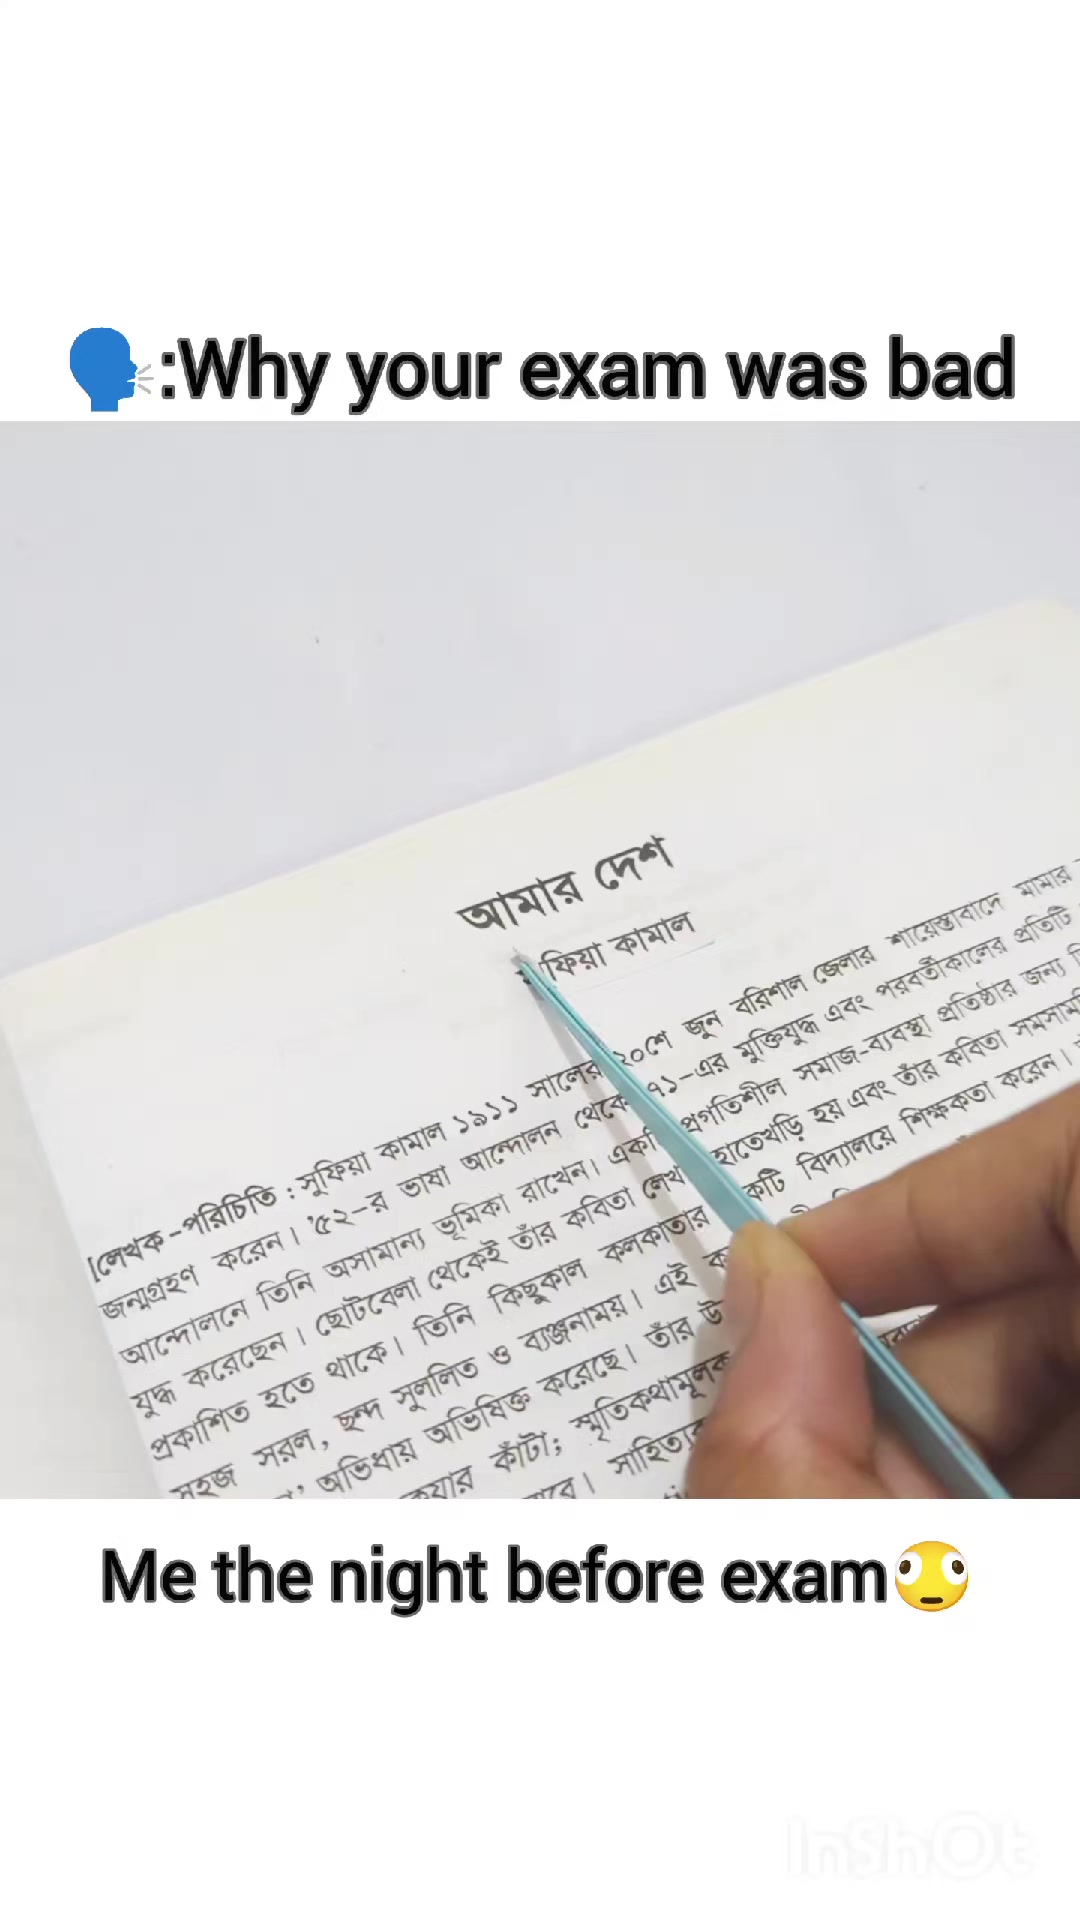 🗣:Why your exam was bad
আমার দেশ
সুফিয়া কামাল
[লেখক-পরিচিতি : সুফিয়া কামাল ১৯১১ সালের ২০শে জুন বরিশাল জেলার শায়েস্তাবাদে মামার
জন্মগ্রহণ করেন। '৫২-র ভাষা আন্দোলন থেকে ৭১-এর মুক্তিযুদ্ধ এবং পরবর্তীকালের প্রতিটি
আন্দোলনে তিনি অসামান্য ভূমিকা রাখেন। একটি প্রগতিশীল সমাজ-ব্যবস্থা প্রতিষ্ঠার জন্য
যুদ্ধ করেছেন। ছোটবেলা থেকেই তাঁর কবিতা লেখা হাতেখড়ি হয় এবং তাঁর কবিতা
প্রকাশিত হতে থাকে। তিনি কিছুকাল কলকাতার একটি বিদ্যালয়ে শিক্ষকতা করেন।
সহজ সরল, ছন্দ সুললিত ও ব্যঞ্জনাময়। এই
অভিধায় অভিষিক্ত করেছে। তাঁর
কাঁটা; স্মৃতিকথামূলক
Me the night before exam🙄
InShOt